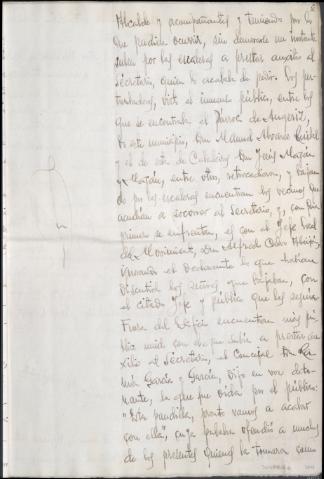 Alcalde y acompañantes y temiendo por lo
que pudiera ocurrir, sin demorarse un instante
suben por las escaleras a prestar auxilio al
Secretario, quien lo acababa de pedir. Los per-
turbadores, visto el inmenso público, entre los
que se encontraba el Párroco de
de este municipio, Don Manuel Alvarez
y el de este de Don Jesús Mazón
y Mazón, entre otros, retrocedieron, y bajan
do por las escaleras encuentran los vecinos que
acudían a socorrer al Secretario, y, con quien
primero se enfrentan, es con el Jefe local
del Movimiento, Don Alfredo
ignorando el Destacamento lo que habían
discutido los señores que bajaban, con
el citado Jefe y público que los seguía
Fuera del Edificio encuentran más pú-
blico unido con el que subía a prestar au-
xilio al Secretario, el Concejal Don
García y García, dijo en voz deto-
nante, la que fue oída por el público:
"Esta pandilla, pronto vamos a acabar
con ella", cuya palabra ofendió a muchos
de los presentes quienes la tomaron como